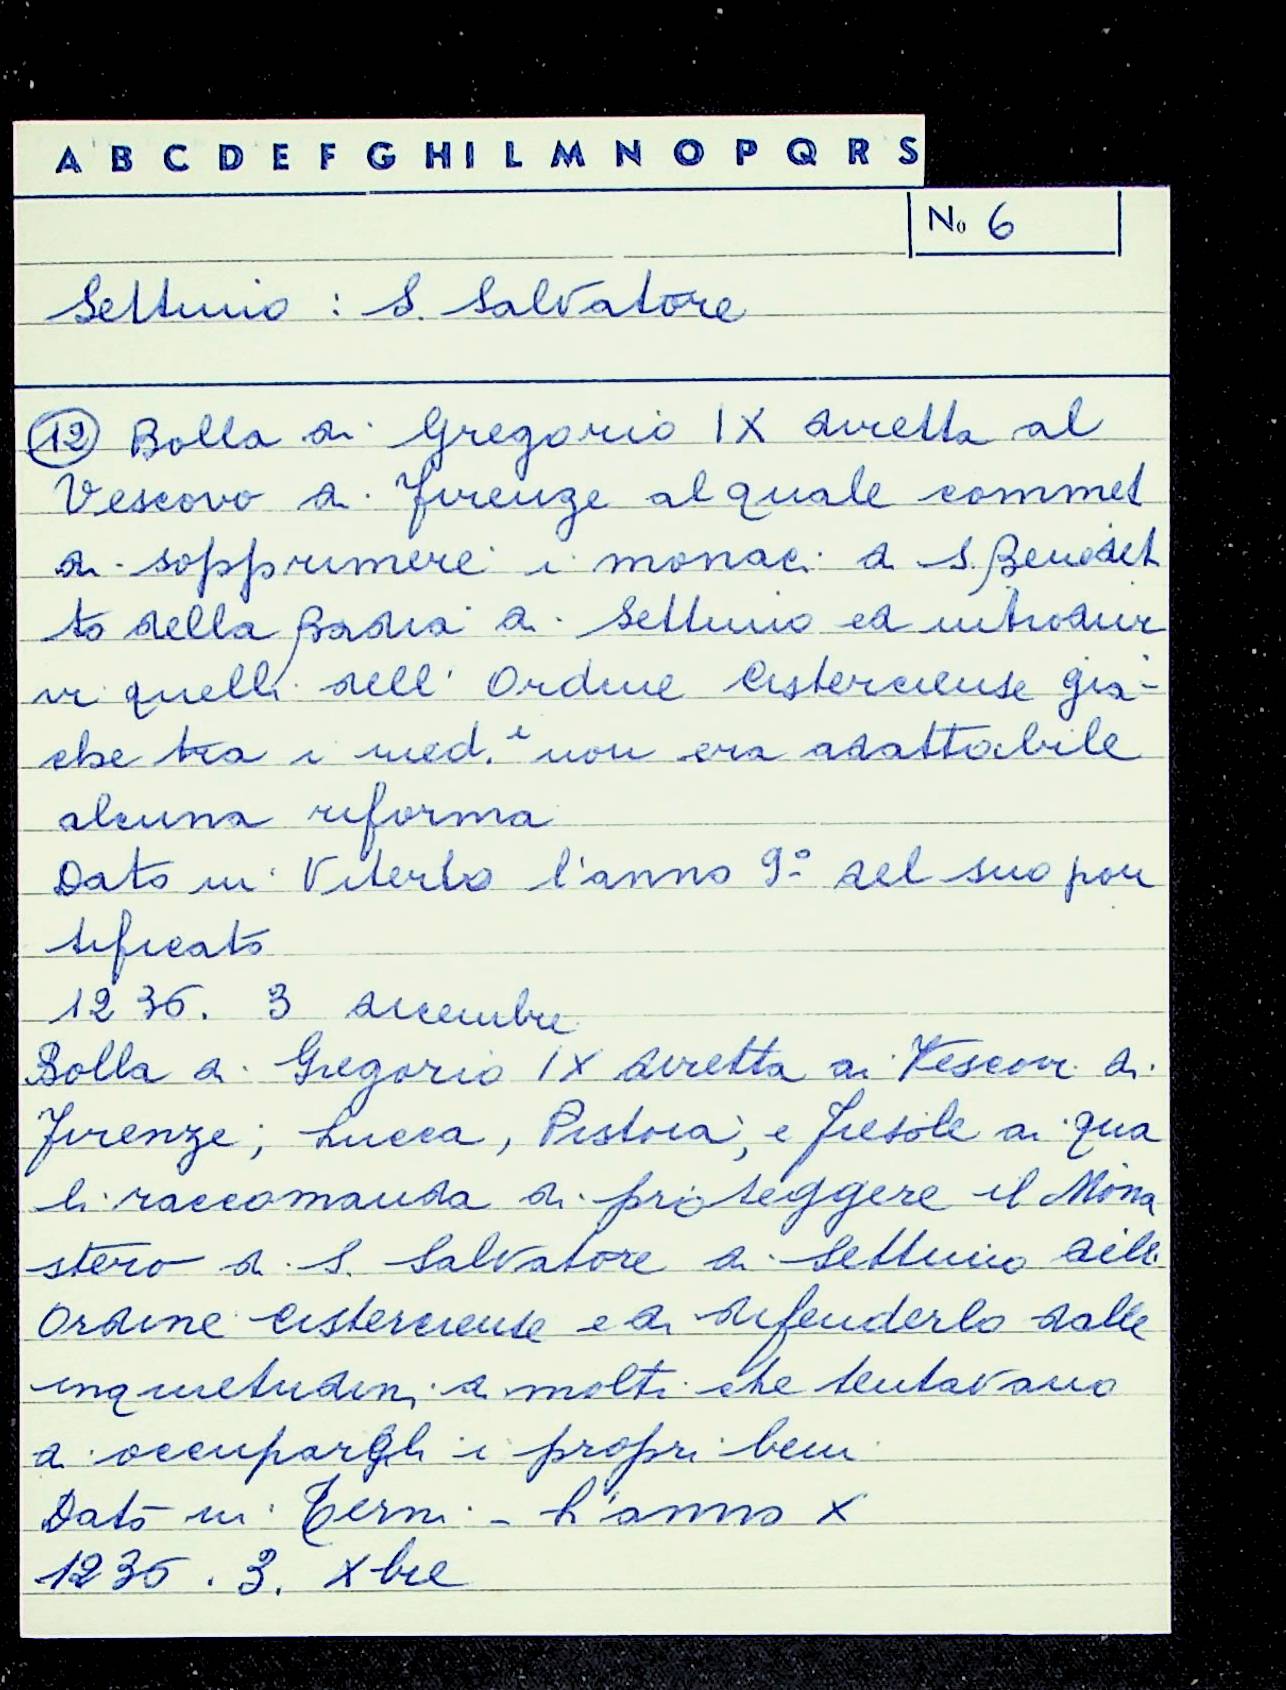 A B C D E F G H I L M N O P Q R S
No 6
Settimo : S. Salvatore
12 Bolla di Gregorio IX diretta al
Vescovo di Firenze al quale commet
di sopprimere i monaci di S. Benedet
to della Badia di Settimo ed introdur
vi quelli dell' Ordine Cistercense già-
che tra i med.i non era adattabile
alcuna riforma
Dato in Viterbo l'anno 9º del suo pon
tificato
1236. 3 dicembre
Bolla di Gregorio IX diretta ai Vescovi di
Firenze, Lucca, Pistoia, e Fiesole ai qua
li raccomanda di proteggere il Mona
stero di S. Salvatore di Settimo dell.
Ordine Cistercense e di difenderlo dalle
inquietudini di molti che tentavano
di occupargli i propri beni
Dato in Terni - L'anno X
1236 . 3. Xbre